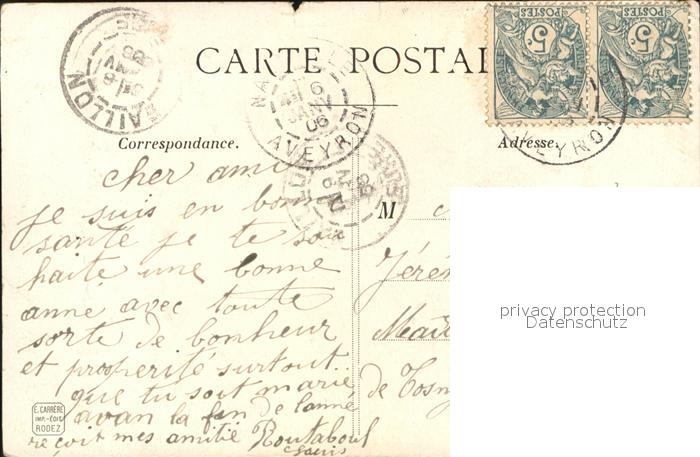 CARTE POSTAL
POSTES 5
POSTES 5
AILLON
NA
6
JANV
06
AVEYRON
AVEYRON
Correspondance.
Adresse.
cher ami
je suis en bonne
santé je te soi
haite une bonne
anne avec toute
sorte de bonheur
et prosperité surtout..
que tu soit marié
avan la fin de lanné
reçoit mes amitié Routaboul
M
Jéré
de Tosny
privacy protection
Datenschutz
E. CARRÈRE
IMP.-ÉDIT
RODEZ